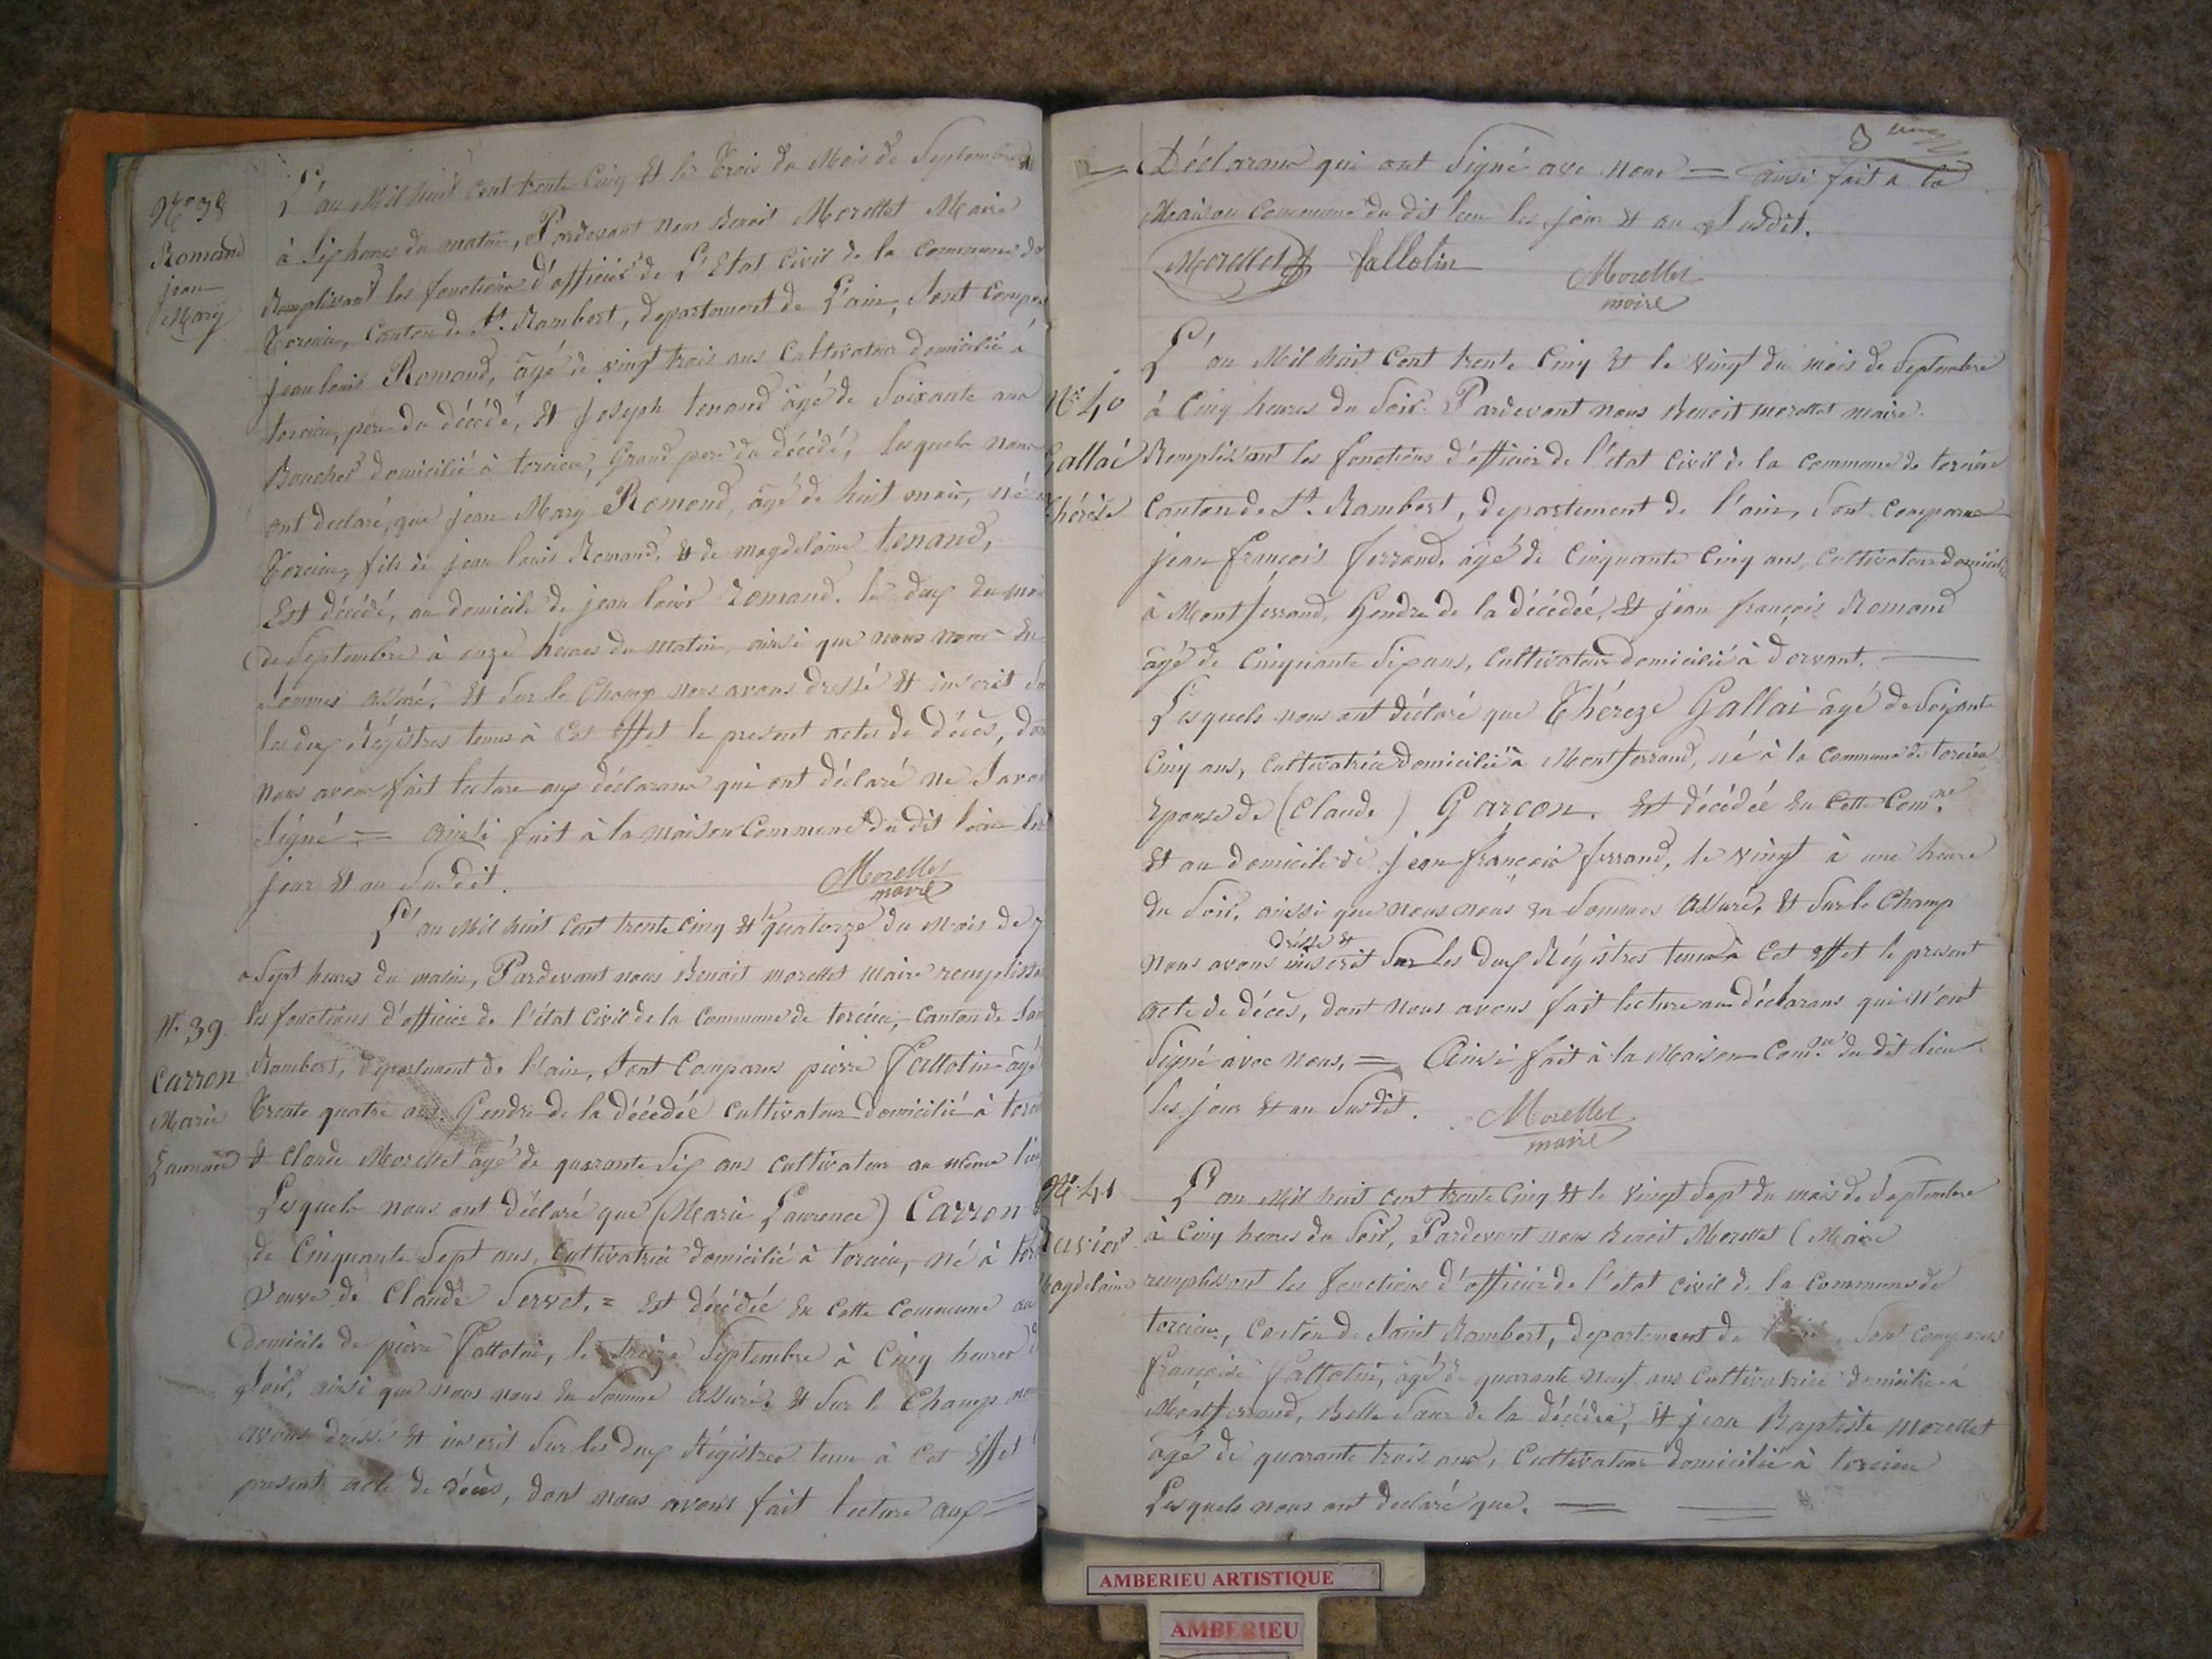 N.° 38
Romand
jean
Mary
L'an Mil huit cent trente Cinq et le trois du Mois de Septembre
à Six heures du matin, Pardevant nous Benoit Morellet Maire
Remplissant les fonctions d'officier de L'Etat Civil de la Commune de
Torcieu, Canton de St. Rambert, departement de L'ain, Sont Compar
jean louis Romand, âgé de vingt trois ans Cultivateur domicilié à
torcieu, pere du décédé, et joseph tenand âgé de Soixante ans
Boucher domicilié à torcieu, Grand pere du décédé, lesquels nous
ont declaré, que jean Mary Romand, âgé de huit mois, né
Torcieu, fils de jean louis Romand, et de magdelaine tenand,
Est décédé, au domicile de jean louis Romand. le deux du moi
de Septembre à onze heures du matin, ainsi que nous nous En
Sommes assuré, et Sur le Champ nous avons dressé et inscrit Su
les deux Régistres tenus à Cet effet le present actes de décès, don
nous avons fait lecture aux déclarans qui ont déclaré ne Savoi
Signé = ainsi fait à la maison Commune du dit lieu les
jour et an Susdit.
Morellet
maire
N.° 39
Carron
Marie
Laurence
L'an Mil huit Cent trente cinq et le quatorze du Mois de 7
a Sept heures du matin, Pardevant nous Benoit morellet Maire remplissa
les fonctions d'officier de l'état Civil de la Commune de torcieu, Canton de Sai
Rambert, departement de l'ain, Sont Comparus pierre fallotin âgé
Trente quatre ans Gendre de la décédée Cultivateur domicilié à torci
et Claude Morellet âgé de quarante Six ans cultivateur au même lieu
Lesquels nous ont déclaré que (Marie Laurence) Carron
de Cinquante Sept ans, Cultivatrice domicilié à torcieu, né à tor
Veuve de Claude Servet, = Est décédée En cette Commune au
domicile de pierre fallotin, le treize Septembre à Cinq heures d
Soir, ainsi que nous nous En Somme assuré, et Sur le Champ no
avons dressé et inscrit Sur les deux Régistres tenu à Cet Effet l
present acte de décès, dont nous avons fait lecture aux =
Déclarans qui ont Signé avec nous = ainsi fait a la
Maison Commune du dit lieu les jour et an Susdit.
Morellet fallotin
Morellet
maire
N.° 40
Gallai
Thérèze
L'an Mil huit Cent trente Cinq et le Vingt du mois de Septembre
à Cinq heures du Soir. Pardevant nous Benoit morellet maire
Remplissant les fonctions d'officier de l'état Civil de la Commune de torcieu
Canton de St. Rambert, departement de l'ain, Sont Comparus
jean françois ferrand, âgé de Cinquante Cinq ans, Cultivateur domicilié
à Montferrand, Gendre de la décédée, et jean françois Romand
âgé de Cinquante Six ans, Cultivateur domicilié à dorvant.
Lesquels nous ont déclaré que Théreze Gallai âgé de Soixante
Cinq ans, Cultivatrice domiciliée à Montferrand, né à la Commune de torcieu
Epouse de (Claude) Garcon. Est décédée En Cette Com.ne
et au domicile de jean françois ferrand, le vingt à une heure
du Soir, ainsi que nous nous En Sommes assuré, et Sur le Champ
nous avons dréssé et inscrit Sur les deux Régistres tenus à Cet effet le present
acte de décès, dont nous avons fait lecture aux déclarans qui n'ont
Signé avec nous, = Ainsi fait à la Maison Com.ne du dit lieu
les jour et an Susdit.
Morellet
maire
N.° 41
Magdelaine
L'an Mil huit cent trente Cinq et le vingt Sept du mois de Septembre
à Cinq heures du Soir, Pardevant nous Benoit Morellet Maire
remplissant les fonctions d'officier de l'état civil de la Commune de
torcieu, Canton de Saint Rambert, departement de l'ain, Sont Comparus
françoise fallotin, âgé de quarante neuf ans Cultivatrice domicilié à
Montferrand, Belle Sœur de la décédée, et jean Baptiste morellet
âgé de quarante trois ans, Cultivateur domicilié à torcieu
Lesquels nous ont declaré que.
AMBERIEU ARTISTIQUE
AMBERIEU